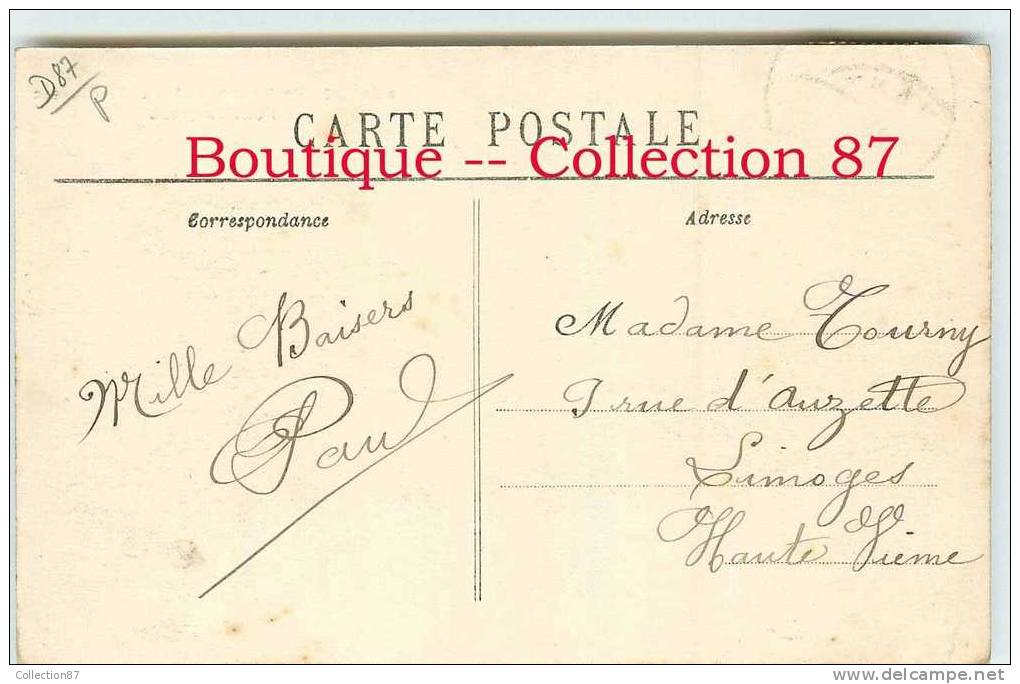 D87
P
CARTE POSTALE
Boutique -- Collection 87
Correspondance
Adresse
Mille Baisers
Paul
Madame Tourny
7 rue d'Auzette
Limoges
Haute Vienne
Collection87
www.delcampe.net